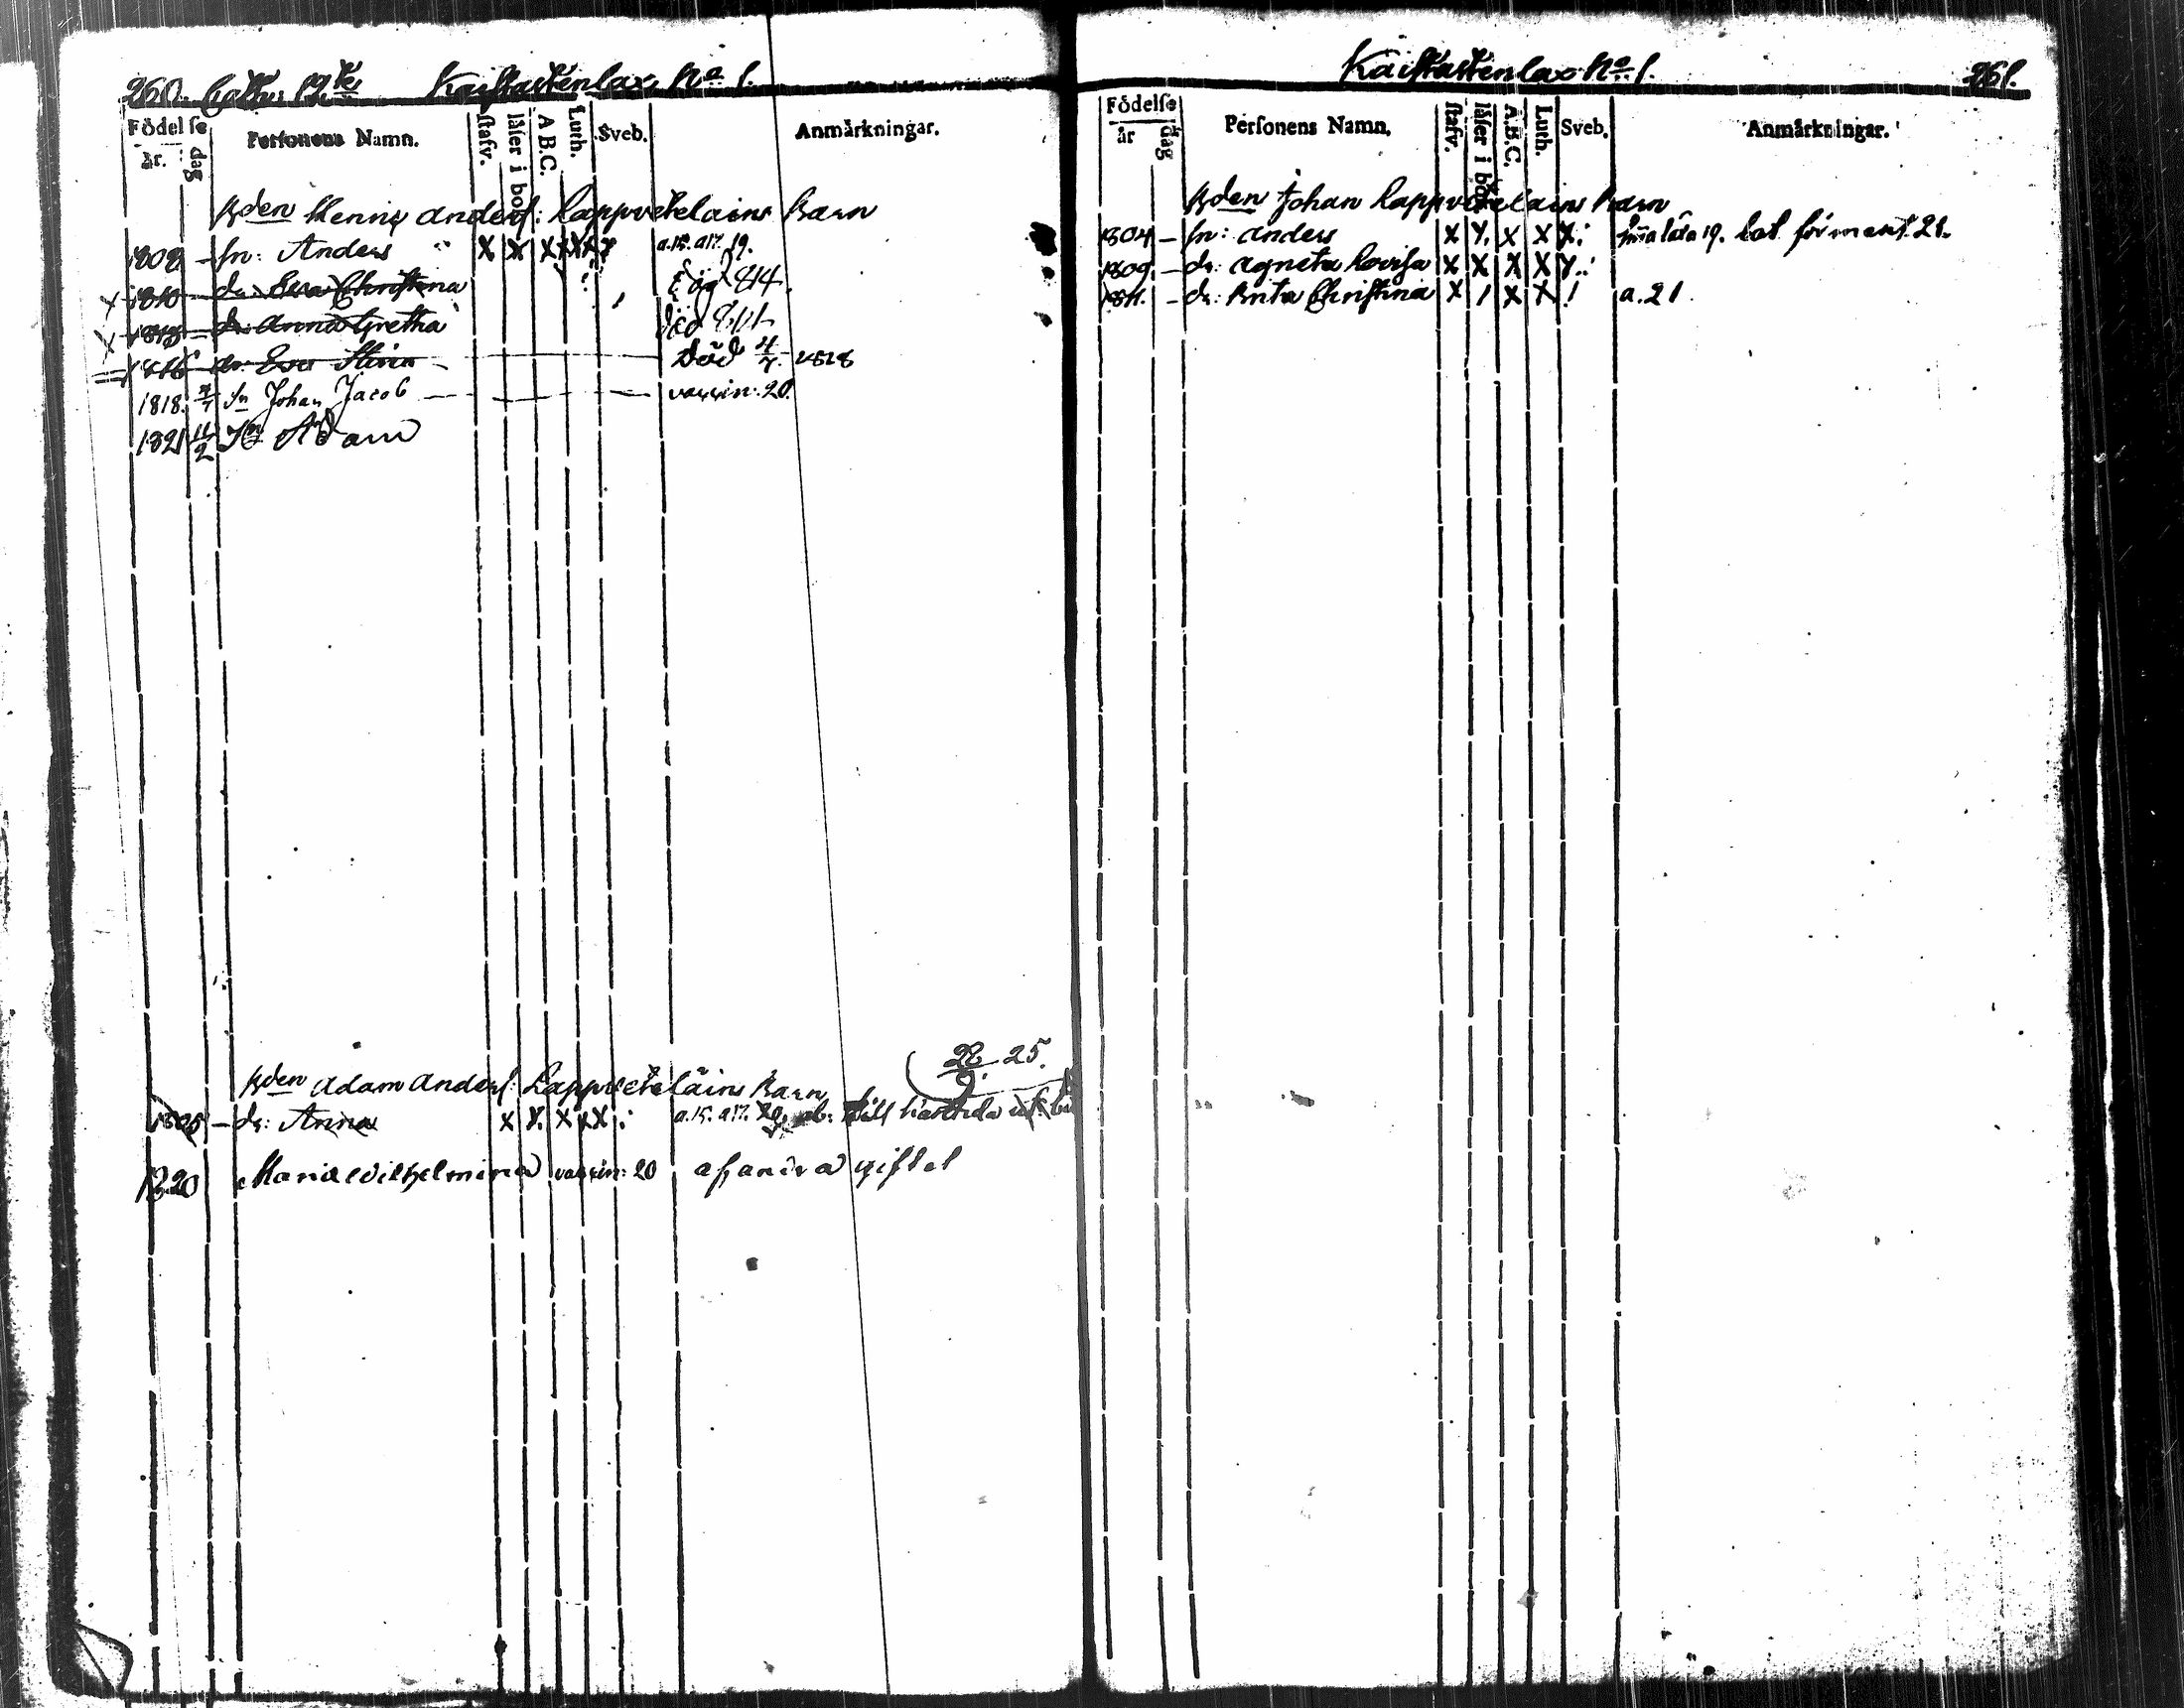 260. Cath: 19de Kaistastenlax No 1.
Födelse
år. dag Personens Namn. stafv. läser i bok A B C. Luth. Sveb. Anmärkningar.
Bden Henric Anders: Lappvetelains Barn
1808 – sn: Anders X X X X X X a.15. a17. 19.
1810 dr: Ewa Christina död 814.
dr: Anna Gretha död
1816 dr: Ewa Stina död 4/7. 1818
1818. 7/7 sn Johan Jacob vaccin: 20.
1821 11/2 Sn Adam
Bden Adam Anders: Lappveteläins Barn
22/9. 25.
1805 – dr: Anna X X. X X X : a.15. a17. 20. till
1820 Maria Wilhelmina vaccin: 20 af andra giftet
Kaistastenlax No 1. 261.
Födelse
år dag Personens Namn. stafv. läser i bok A.B.C. Luth. Sveb. Anmärkningar.
Bden Johan Lappvetelains Barn
1804 – sn: Anders X X. X X X: läsa 19. 21.
1809. – dr: Agneta Lovisa X X X X X..
1811. – dr: Brita Christina X / X X / a. 21